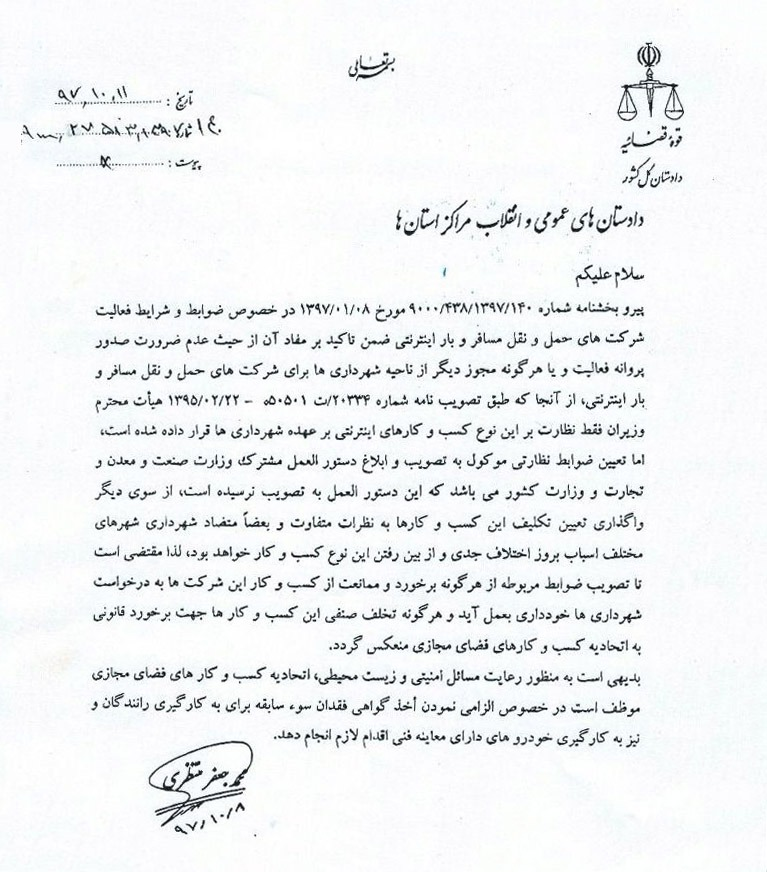 بسمه تعالی
قوه قضائیه
دادستان کل کشور
تاریخ : ۹۷,۱۰,۱۱
شماره
پیوست :
دادستان های عمومی و انقلاب مراکز استان ها
سلام علیکم
پیرو بخشنامه شماره ۹۰۰۰/۴۳۸/۱۳۹۷/۱۴۰ مورخ ۱۳۹۷/۰۱/۰۸ در خصوص ضوابط و شرایط فعالیت
شرکت های حمل و نقل مسافر و بار اینترنتی ضمن تاکید بر مفاد آن از حیث عدم ضرورت صدور
پروانه فعالیت و یا هرگونه مجوز دیگر از ناحیه شهرداری ها برای شرکت های حمل و نقل مسافر و
بار اینترنتی، از آنجا که طبق تصویب نامه شماره ۲۰۳۳۴/ت ۵۰۵۰۱ه – ۱۳۹۵/۰۲/۲۲ هیأت محترم
وزیران فقط نظارت بر این نوع کسب و کارهای اینترنتی بر عهده شهرداری ها قرار داده شده است،
اما تعیین ضوابط نظارتی موکول به تصویب و ابلاغ دستور العمل مشترک وزارت صنعت و معدن و
تجارت و وزارت کشور می باشد که این دستور العمل به تصویب نرسیده است، از سوی دیگر
واگذاری تعیین تکلیف این کسب و کارها به نظرات متفاوت و بعضاً متضاد شهرداری شهرهای
مختلف اسباب بروز اختلاف جدی و از بین رفتن این نوع کسب و کار خواهد بود، لذا مقتضی است
تا تصویب ضوابط مربوطه از هرگونه برخورد و ممانعت از کسب و کار این شرکت ها به درخواست
شهرداری ها خودداری بعمل آید و هرگونه تخلف صنفی این کسب و کار ها جهت برخورد قانونی
به اتحادیه کسب و کارهای فضای مجازی منعکس گردد.
بدیهی است به منظور رعایت مسائل امنیتی و زیست محیطی، اتحادیه کسب و کار های فضای مجازی
موظف است در خصوص الزامی نمودن أخذ گواهی فقدان سوء سابقه برای به کارگیری رانندگان و
نیز به کارگیری خودرو های دارای معاینه فنی اقدام لازم انجام دهد.
محمد جعفر منتظری
۹۷/۱۰/۸